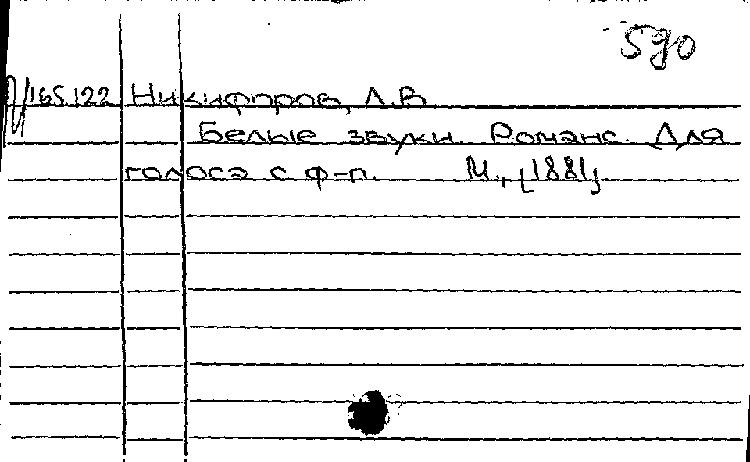 590
165.122 Никифоров, Л.В.
Белые звуки. Романс. Для
голоса с ф-п. М., [1881]